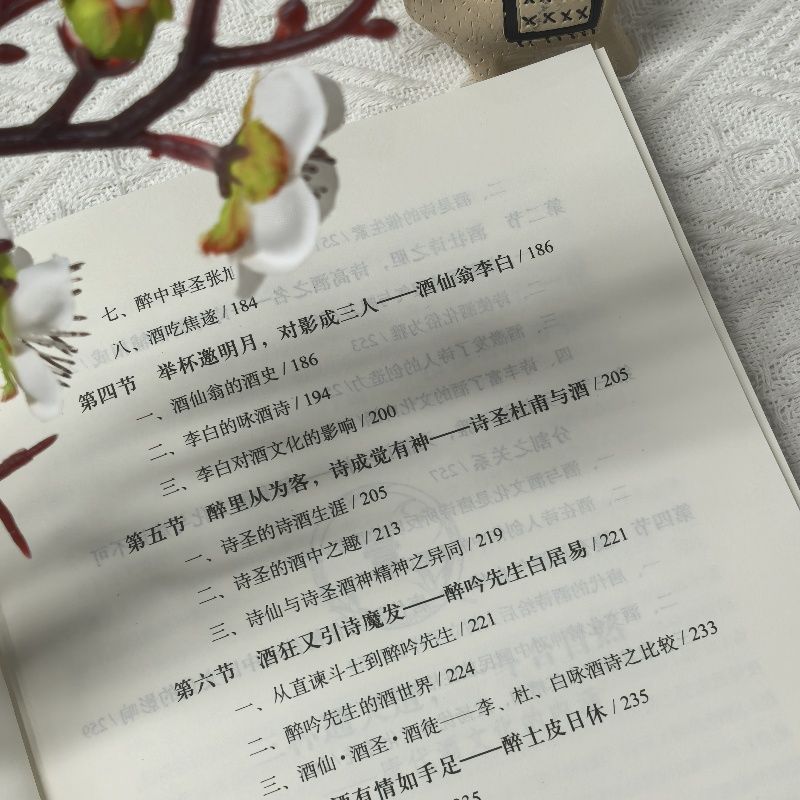 七、醉中草圣张旭
八、酒吃焦遂 / 184
第四节 举杯邀明月，对影成三人——酒仙翁李白 / 186
一、酒仙翁的酒史 / 186
二、李白的咏酒诗 / 194
三、李白对酒文化的影响 / 200
第五节 醉里从为客，诗成觉有神——诗圣杜甫与酒 / 205
一、诗圣的诗酒生涯 / 205
二、诗圣的酒中之趣 / 213
三、诗仙与诗圣酒神精神之异同 / 219
第六节 酒狂又引诗魔发——醉吟先生白居易 / 221
一、从直谏斗士到醉吟先生 / 221
二、醉吟先生的酒世界 / 224
三、酒仙·酒圣·酒徒——李、杜、白咏酒诗之比较 / 233
酒有情如手足——醉士皮日休 / 235
235